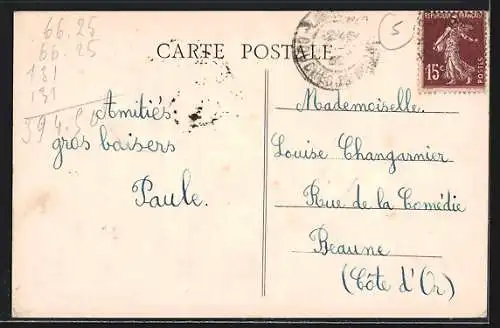 66.25
66.25
131
131
394.5
CARTE POSTALE
5
REPUBLIQUE FRANÇAISE
15c
POSTES
Amitiés
gros baisers
Paule.
Mademoiselle
Louise Changarnier
Rue de la Comédie
Beaune
(Côte d'Or)